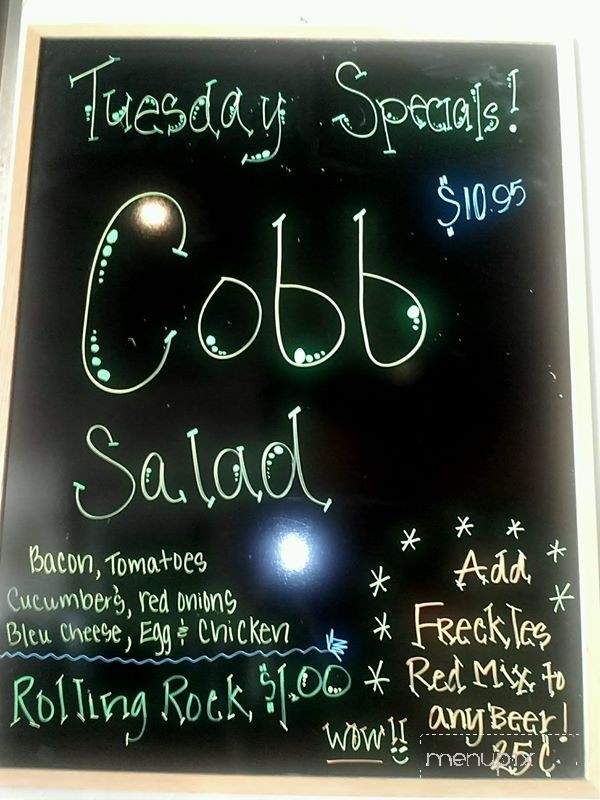 Tuesday Specials!
$10.95
Cobb
Salad
Bacon, Tomatoes
Cucumbers, red onions
Bleu cheese, Egg & Chicken
Rolling Rock $1.00
WOW!!
Add
Freckles
Red Mix to
any Beer!
25¢
menupix